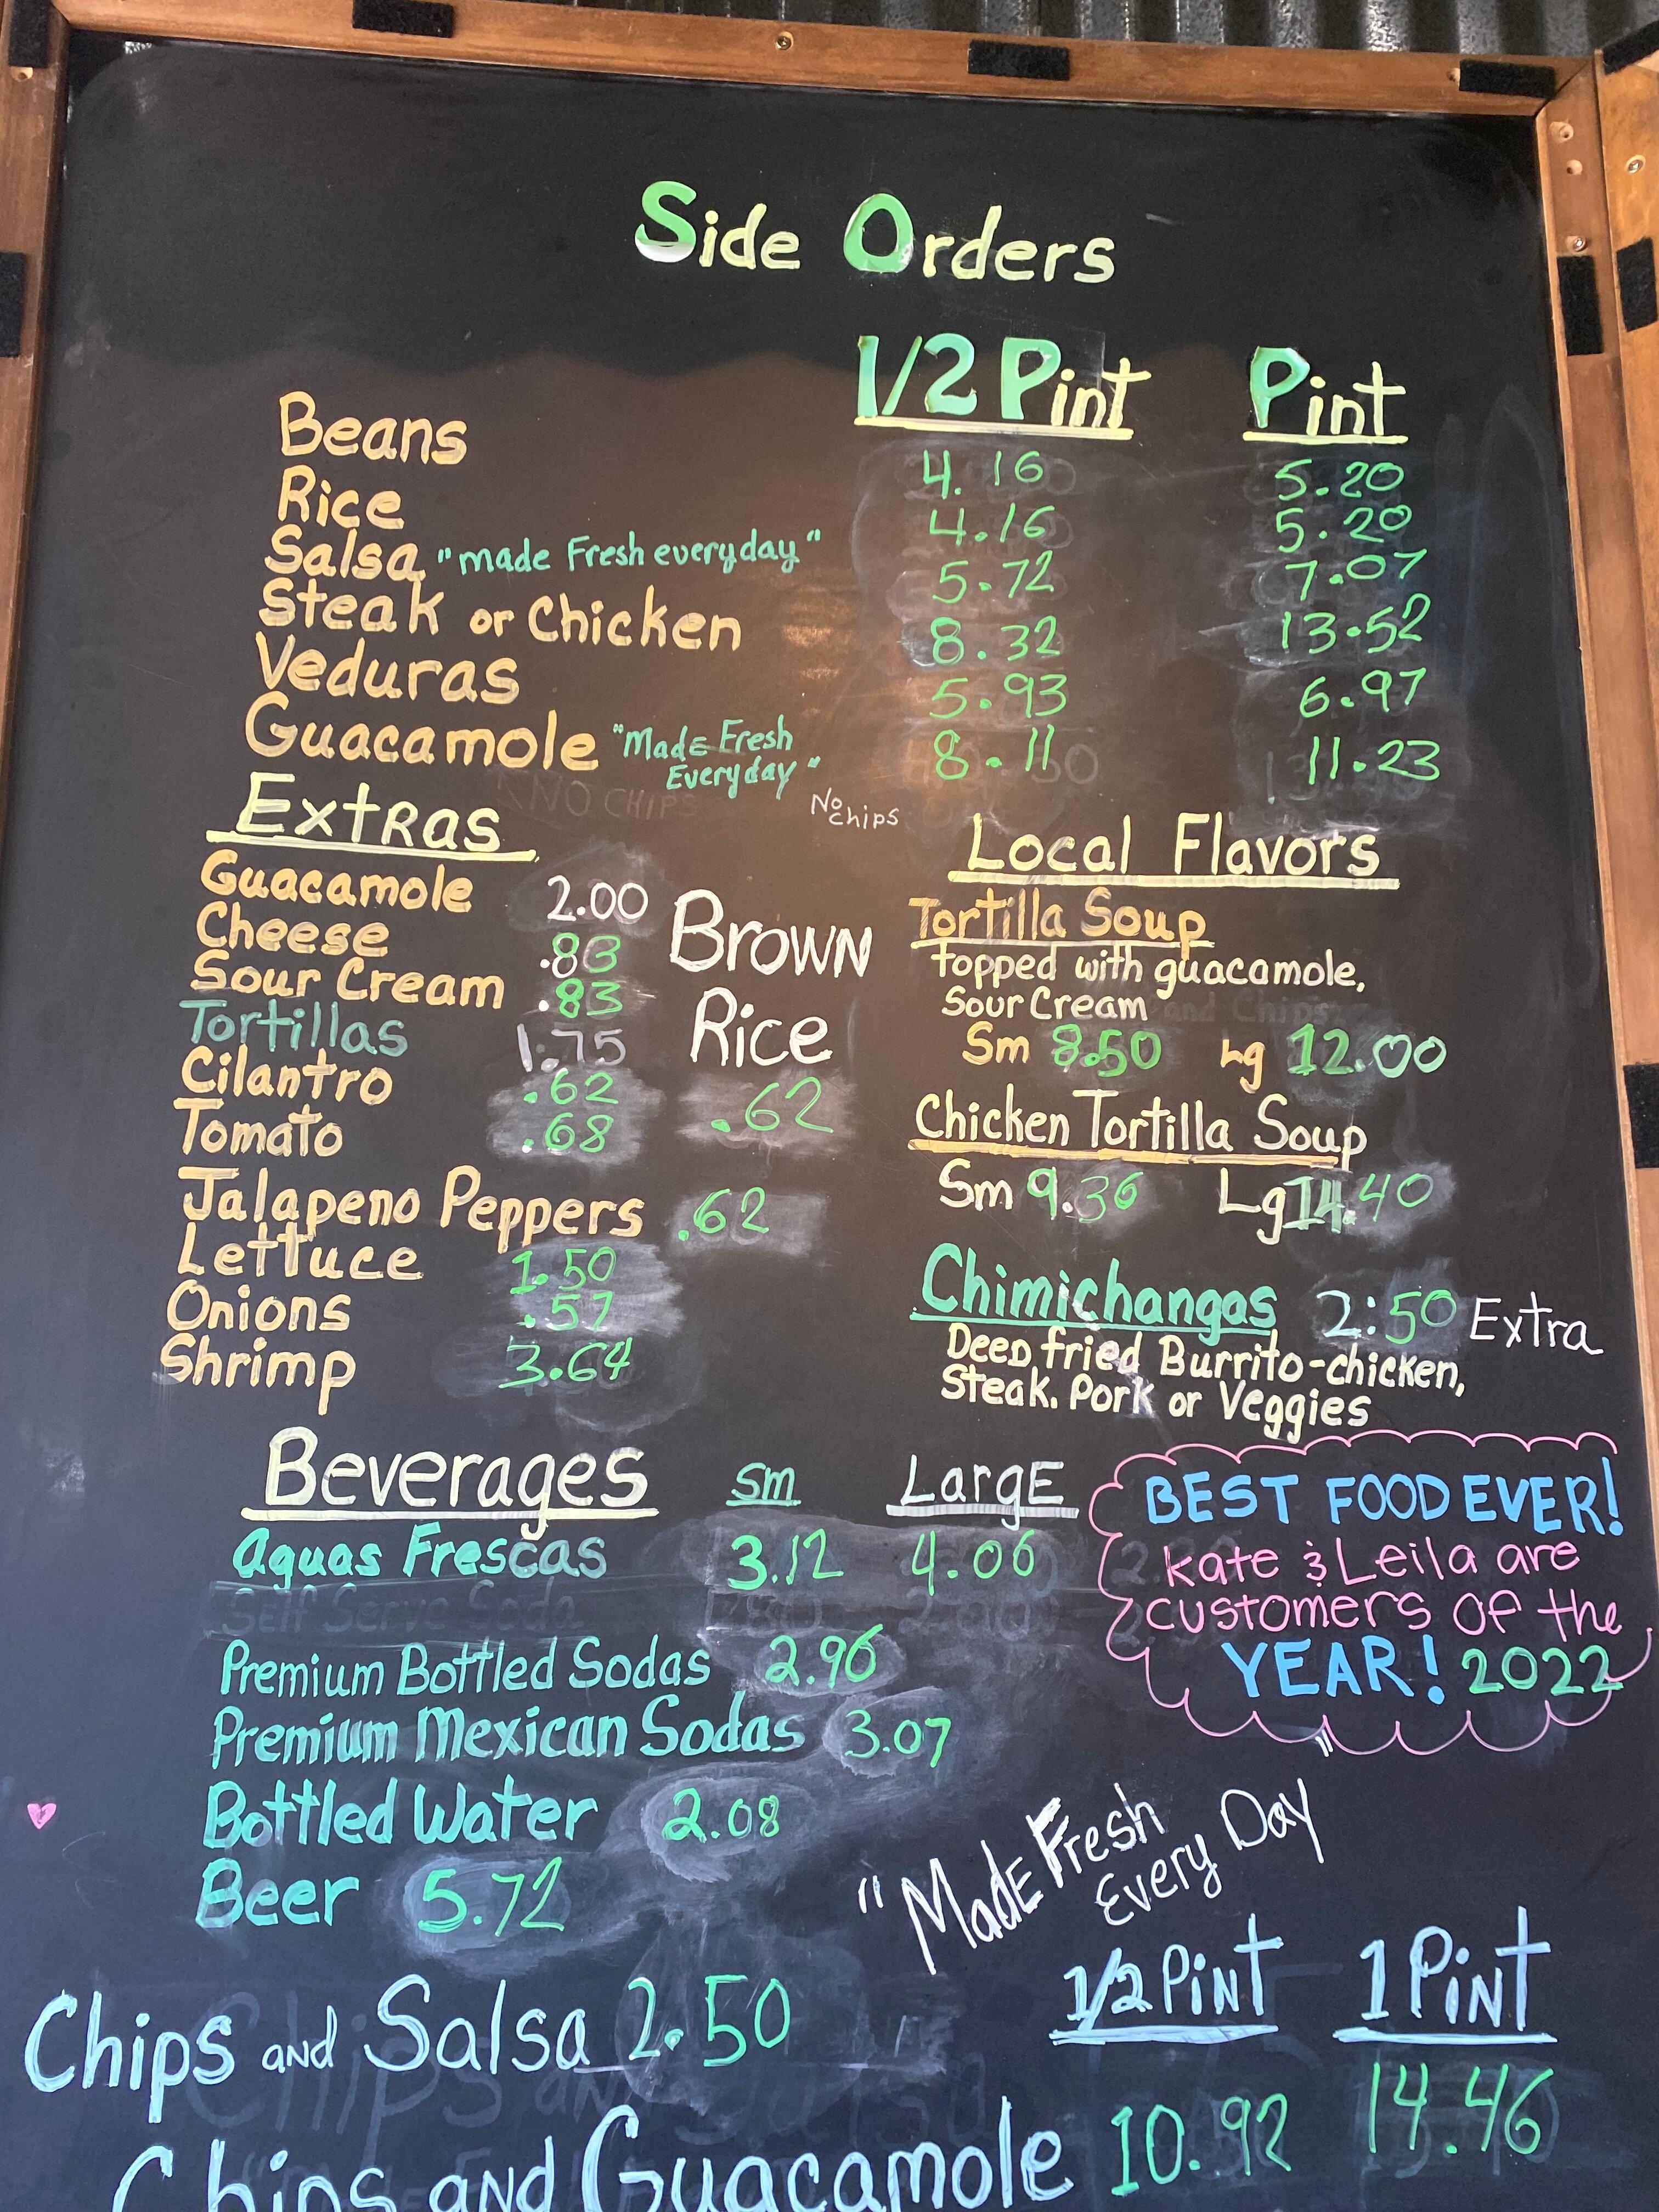 Side Orders
1/2 Pint Pint
Beans 4.16 5.20
Rice 4.16 5.20
Salsa "made Fresh everyday" 5.72 7.07
Steak or Chicken 8.32 13.52
Veduras 5.93 6.97
Guacamole "Made Fresh 8.11 11.23
Everyday"
No
chips
Extras
Guacamole 2.00
Cheese .83
Sour Cream .83
Tortillas 1.75
Cilantro .62
Tomato .68
Jalapeno Peppers .62
Lettuce 1.50
Onions .57
Shrimp 3.64
Brown
Rice
.62
Local Flavors
Tortilla Soup
topped with guacamole,
Sour Cream
Sm 8.50 Lg 12.00
Chicken Tortilla Soup
Sm 9.36 Lg 14.40
Chimichangas 2:50 Extra
Deep fried Burrito-chicken,
Steak. Pork or Veggies
Beverages sm LargE
Aguas Frescas 3.12 4.06
Self Serve Soda
Premium Bottled Sodas 2.96
Premium Mexican Sodas 3.07
Bottled Water 2.08
Beer 5.72
BEST FOOD EVER!
Kate & Leila are
customers of the
YEAR! 2022
"Made Fresh
Every Day
1/2 Pint 1 Pint
Chips and Salsa 2.50
Chips and Guacamole 10.92 14.46